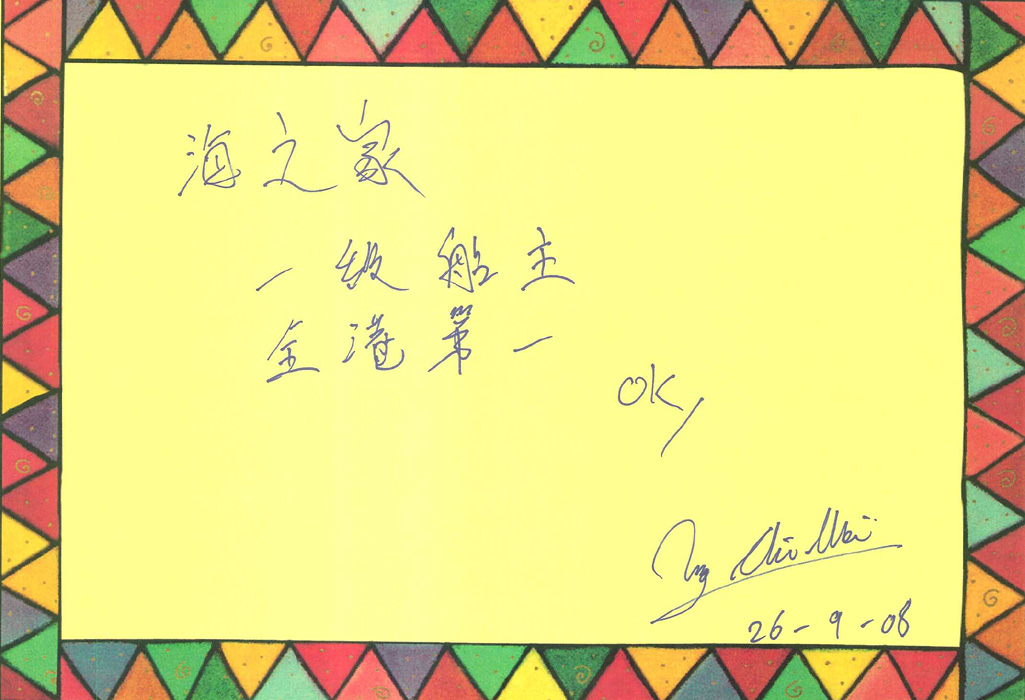 海之家
一級船主
全港第一
OK,
Ng Chi Wai
26-9-08